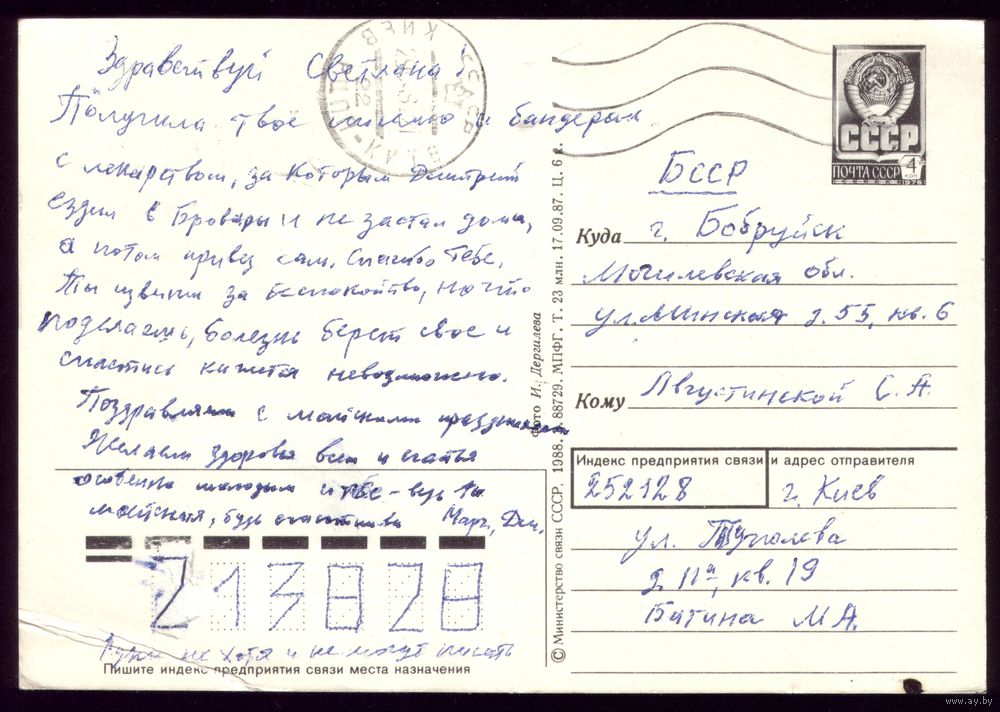 Здравствуй Светлана!
Получила твоё письмо и бандероль
с лекарством, за которым Дмитрий
ездил в Бровары и не застал дома,
а потом привез сам. Спасибо тебе,
ты извини за беспокойство, но что
поделаешь, болезнь берет свое и
спастись кажется невозможно.
Поздравляем с майскими праздниками
Желаем здоровья всем и счастья
особенно молодым и тебе - ведь ты
майская, будь счастлива Марг., Дм.
213828
Руки не хотят и не могут писать
Пишите индекс предприятия связи места назначения
© Министерство связи СССР. 1988. З. 88729. МПФГ. Т. 23 млн. 17.09.87. Ц. 6 к.
Фото И. Дергилева
КИЕВ
СССР
ПОЧТА СССР
4 коп
1976
БССР
Куда г. Бобруйск
Могилевская обл.
ул. Минская д. 55, кв. 6
Кому Августинской С. А.
Индекс предприятия связи и адрес отправителя
252128 г. Киев
ул. Туполева
д. 11а, кв. 19
Батина М А.